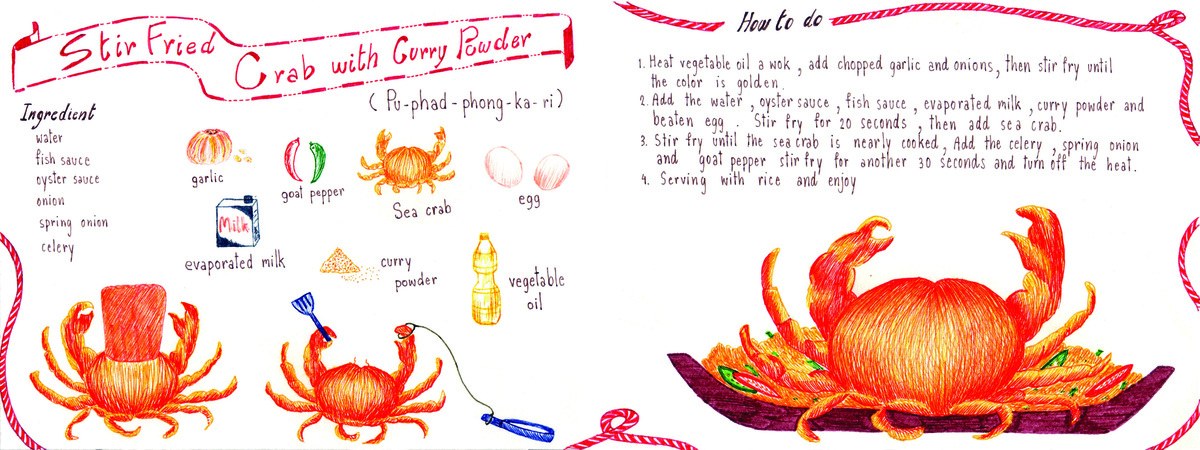 Stir Fried
Crab with Curry Powder
(Pu-phad-phong-ka-ri)
Ingredient
water
fish sauce
oyster sauce
onion
spring onion
celery
garlic
goat pepper
Sea crab
egg
Milk
evaporated milk
curry
powder
vegetable
oil
How to do
1. Heat vegetable oil a wok , add chopped garlic and onions, then stir fry until
the color is golden.
2. Add the water , oyster sauce , fish sauce , evaporated milk , curry powder and
beaten egg . Stir fry for 20 seconds , then add sea crab.
3. Stir fry until the sea crab is nearly cooked, Add the celery , spring onion
and goat pepper stir fry for another 30 seconds and turn off the heat.
4. Serving with rice and enjoy